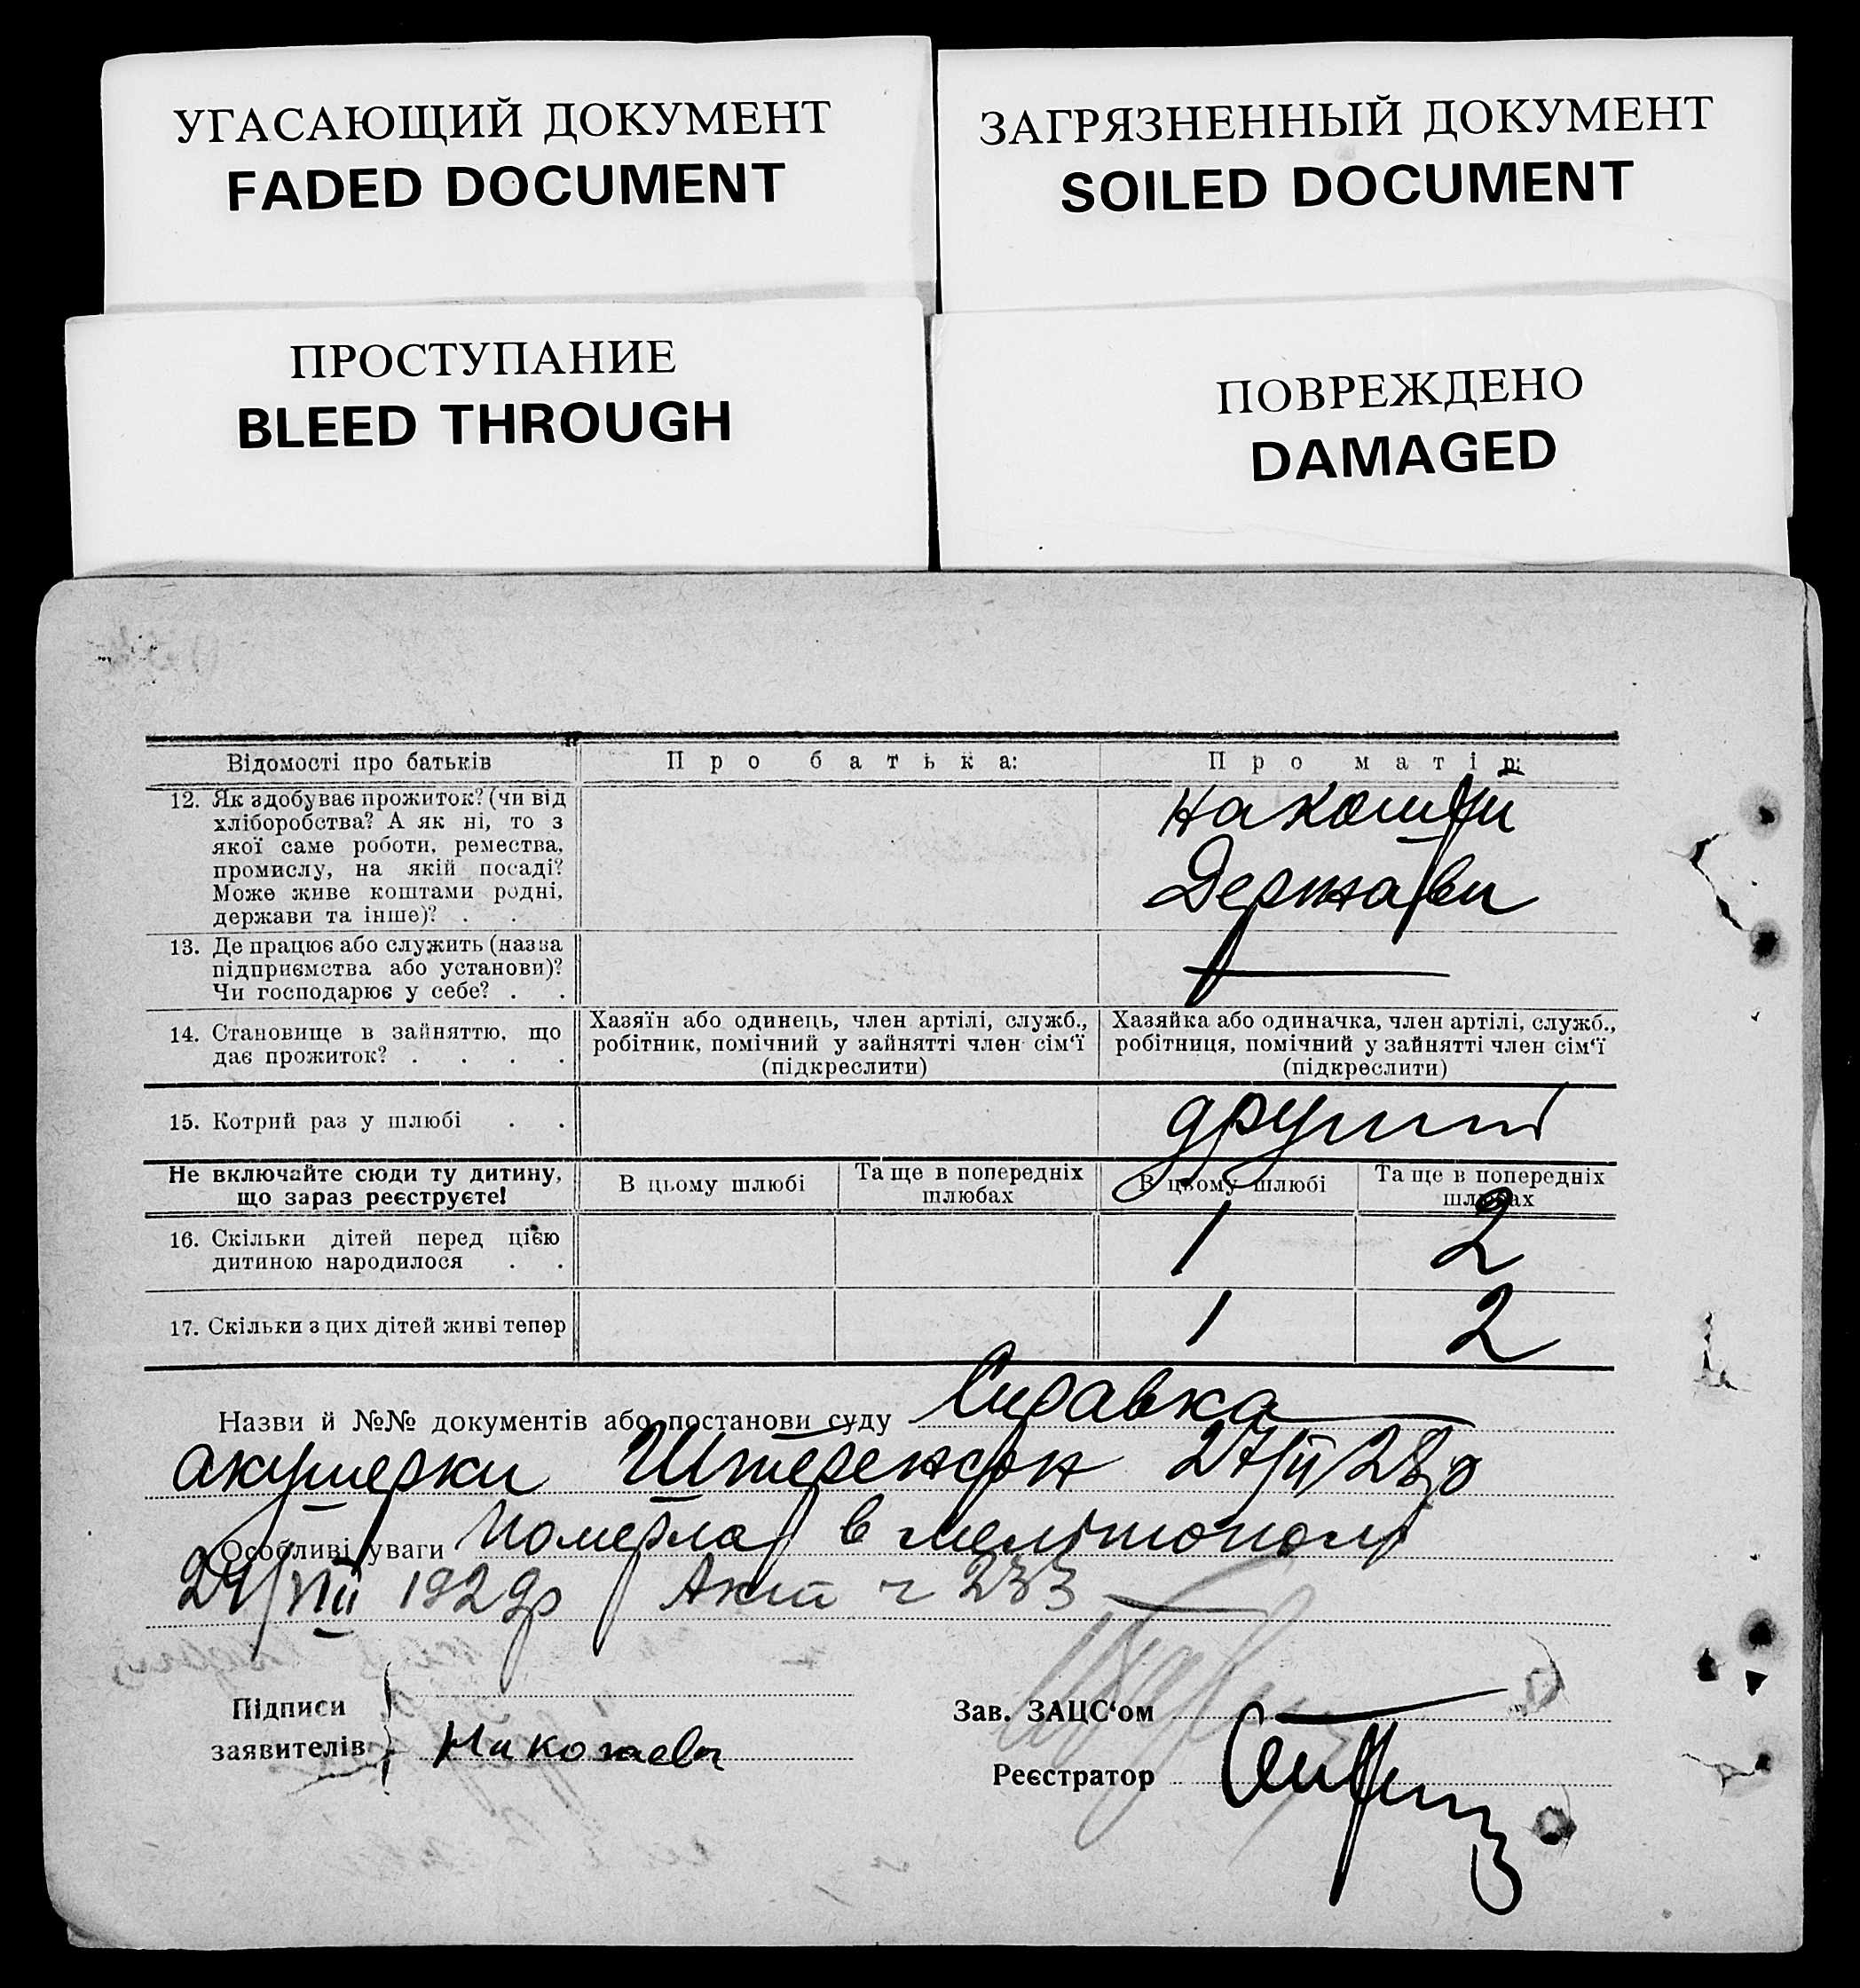 УГАСАЮЩИЙ ДОКУМЕНТ
FADED DOCUMENT
ЗАГРЯЗНЕННЫЙ ДОКУМЕНТ
SOILED DOCUMENT
ПРОСТУПАНИЕ
BLEED THROUGH
ПОВРЕЖДЕНО
DAMAGED
Відомості про батьків
Про батька:
Про матір:
12. Як здобуває прожиток? (чи від
хліборобства? А як ні, то з
якої саме роботи, ремества,
промислу, на якій посаді?
Може живе коштами родні,
держави та інше)? . .
на кошти
Держави
13. Де працює або служить (назва
підприємства або установи)?
Чи господарює у себе? . .
—
14. Становище в зайняттю, що
дає прожиток? . . . .
Хазяїн або одинець, член артілі, служб.,
робітник, помічний у зайнятті член сім‘ї
(підкреслити)
Хазяйка або одиначка, член артілі, служб.,
робітниця, помічний у зайнятті член сім‘ї
(підкреслити)
15. Котрий раз у шлюбі . .
другий
Не включайте сюди ту дитину,
що зараз реєструєте!
В цьому шлюбі
Та ще в попередніх
шлюбах
В цьому шлюбі
Та ще в попередніх
шлюбах
16. Скільки дітей перед цією
дитиною народилося . .
1 2
17. Скільки з цих дітей живі тепер
1 2
Назви й №№ документів або постанови суду Справка
акушерки 27/II 28р
Особливі уваги Померла в Мелітополі
24/VIII 1929р Акт ч 233
Підписи
заявителів
Зав. ЗАЦС‘ом
Реєстратор